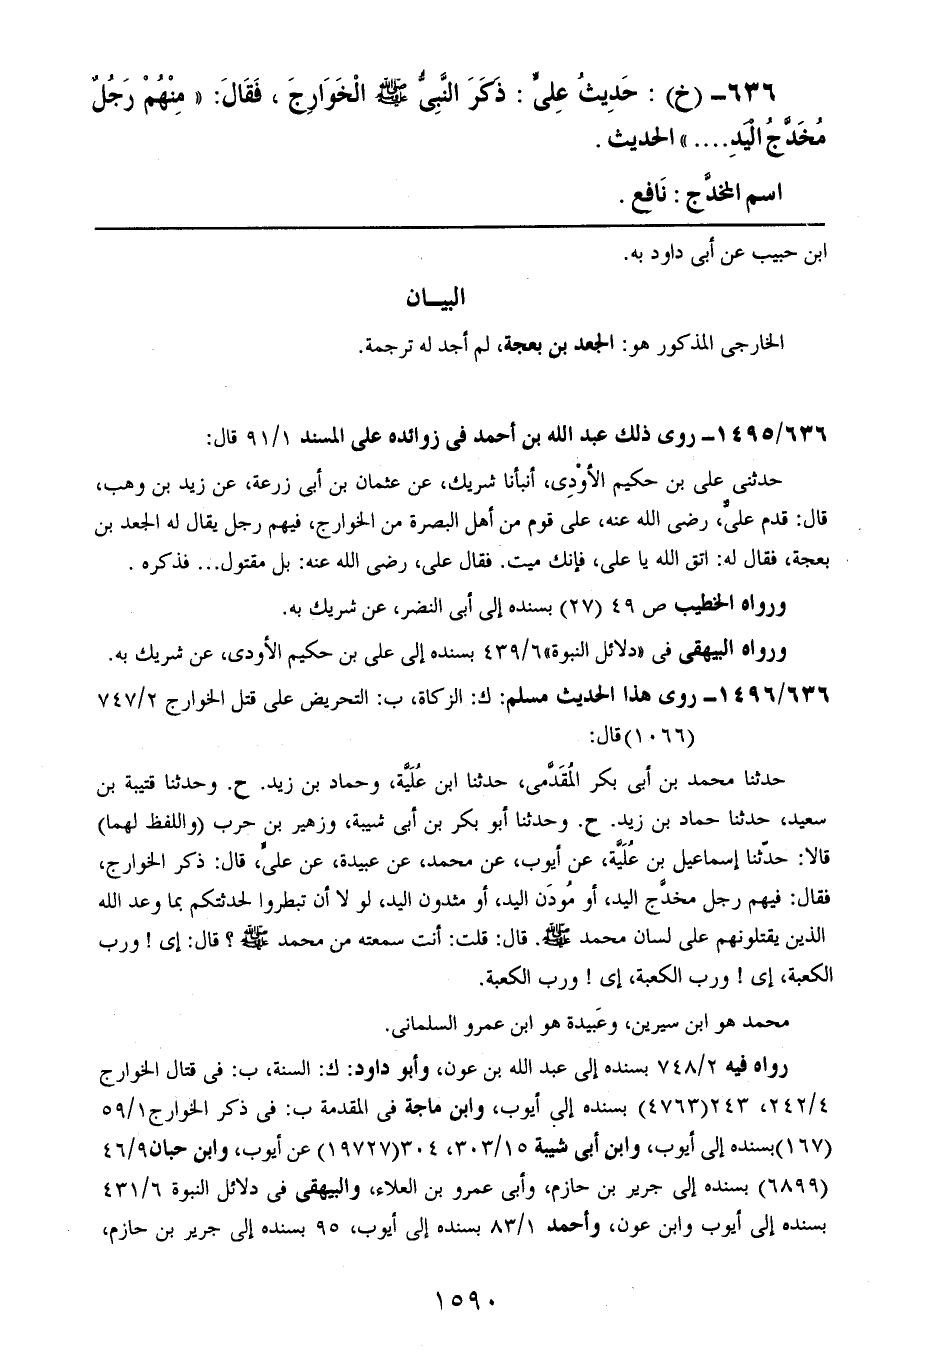 ٦٣٦ــ (خ) : حَدِيثُ عِلىٍّ : ذَكَرَ النَّبِىُّ ﷺ الْخَوَارِجَ ، فَقَالَ: « مِنْهُمْ رَجُلٌ
مُخَدَّجُ الْيَدِ.... » الحديث .
اسم المخدَّج : نَافع .
ابن حبيب عن أبى داود به.
البيــان
الخارجى المذكور هو: الجعد بن بعجة، لم أجد له ترجمة.
١٤٩٥/٦٣٦ــ روى ذلك عبد الله بن أحمد فى زوائده على المسند ٩١/١ قال:
حدثنى على بن حكيم الأوْدِى، أنبأنا شريك، عن عثمان بن أبى زرعة، عن زيد بن وهب،
قال: قدم علىٌّ، رضى الله عنه، على قوم من أهل البصرة من الخوارج، فيهم رجل يقال له الجعد بن
بعجة، فقال له: اتق الله يا على، فإنك ميت. فقال على، رضى الله عنه: بل مقتول... فذكره .
ورواه الخطيب ص ٤٩ (٢٧) بسنده إلى أبى النضر، عن شريك به.
ورواه البيهقى فى «دلائل النبوة»٤٣٩/٦ بسنده إلى على بن حكيم الأودى، عن شريك به.
١٤٩٦/٦٣٦ــ روى هذا الحديث مسلم: ك: الزكاة، ب: التحريض على قتل الخوارج ٧٤٧/٢
(١٠٦٦)قال:
حدثنا محمد بن أبى بكر المُقَدَّمى، حدثنا ابن عُلَيَّة، وحماد بن زيد. ح. وحدثنا قتيبة بن
سعيد، حدثنا حماد بن زيد. ح. وحدثنا أبو بكر بن أبى شيبة، وزهير بن حرب (واللفظ لهما)
قالا: حدّثنا إسماعيل بن عُلَيَّة، عن أيوب، عن محمد، عن عبيدة، عن علىٍّ، قال: ذكر الخوارج،
فقال: فيهم رجل مخدَّج اليد، أو مُودَن اليد، أو مثدون اليد، لو لا أن تبطروا لحدثتكم بما وعد الله
الذين يقتلونهم على لسان محمد ﷺ. قال: قلت: أنت سمعته من محمد ﷺ ؟ قال: إى ! ورب
الكعبة، إى ! ورب الكعبة، إى ! ورب الكعبة.
محمد هو ابن سيرين، وعَبيدة هو ابن عمرو السلمانى.
رواه فيه ٧٤٨/٢ بسنده إلى عبد الله بن عون، وأبو داود: ك: السنة، ب: فى قتال الخوارج
٢٤٢/٤، ٢٤٣(٤٧٦٣) بسنده إلى أيوب، وابن ماجة فى المقدمة ب: فى ذكر الخوارج٥٩/١
(١٦٧)بسنده إلى أيوب، وابن أبى شيبة ٣٠٣/١٥، ٣٠٤(١٩٧٢٧) عن أيوب، وابن حبان٤٦/٩
(٦٨٩٩) بسنده إلى جرير بن حازم، وأبى عمرو بن العلاء، والبيهقى فى دلائل النبوة ٤٣١/٦
بسنده إلى أيوب وابن عون، وأحمد ٨٣/١ بسنده إلى أيوب، ٩٥ بسنده إلى جرير بن حازم،
١٥٩٠